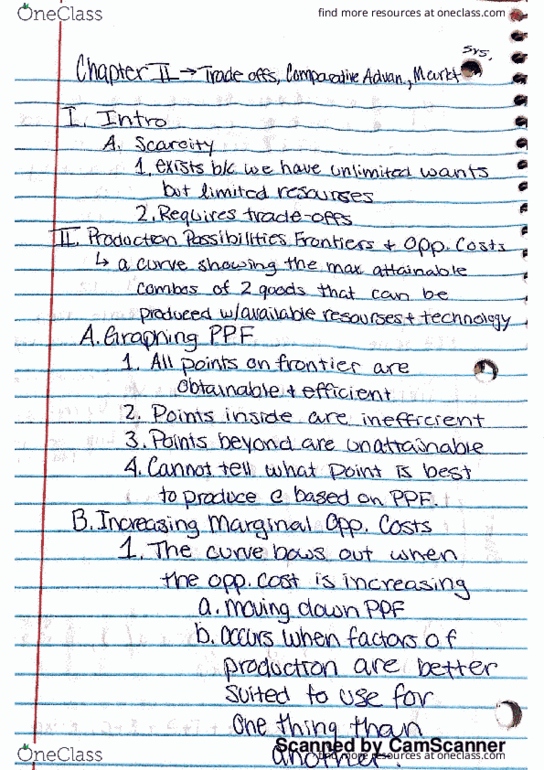 OneClass
find more resources at oneclass.com
sys.
Chapter II → Trade offs, Comparative Advan., Markt
I. Intro
A. Scarcity
1. exists b/c we have unlimited wants
but limited resourses
2. Requires trade-offs
II. Production Possibilities Frontiers + Opp. Costs
↳ a curve showing the max attainable
combos of 2 goods that can be
produced w/available resourses + technology
A. Graphing PPF
1. All points on frontier are
obtainable + efficient
2. Points inside are inefficient
3. Points beyond are unattainable
4. Cannot tell what point is best
to produce @ based on PPF.
B. Increasing Marginal Opp. Costs
1. The curve bows out when
the opp. cost is increasing
a. moving down PPF
b. occurs when factors of
production are better
suited to use for
one thing than
another.
Scanned by CamScanner
OneClass
find more resources at oneclass.com